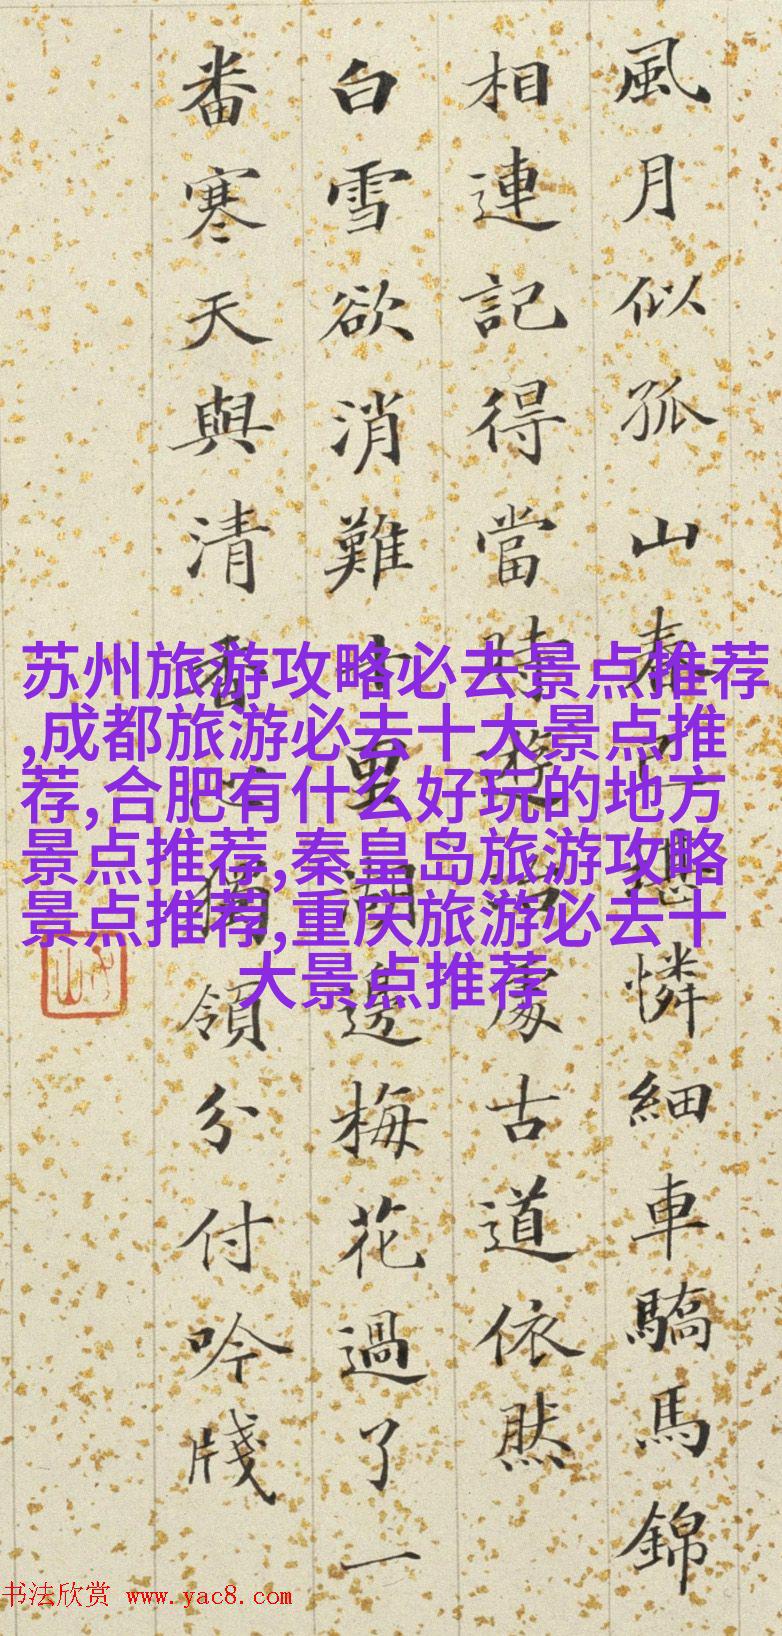 風月似孤山春信應憐細車驕馬錦
相連記得當時遊冶處古道依然
白雪欲消難十里湖邊梅花過了一
番寒天與清香心獨領分付吟牋
苏州旅游攻略必去景点推荐
,成都旅游必去十大景点推
荐,合肥有什么好玩的地方
景点推荐,秦皇岛旅游攻略
景点推荐,重庆旅游必去十
大景点推荐
书法欣赏 www.yac8.com